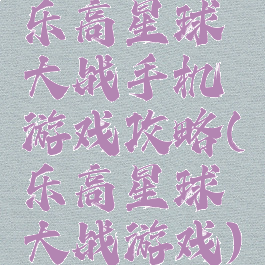 乐高星球
大战手机
游戏攻略(
乐高星球
大战游戏)